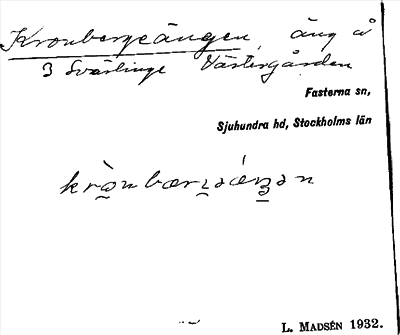 Kronbergeängen, äng å
3 Svärtinge Västergården
Fasterna sn,
Sjuhundra hd, Stockholms län
L. MADSÉN 1932.